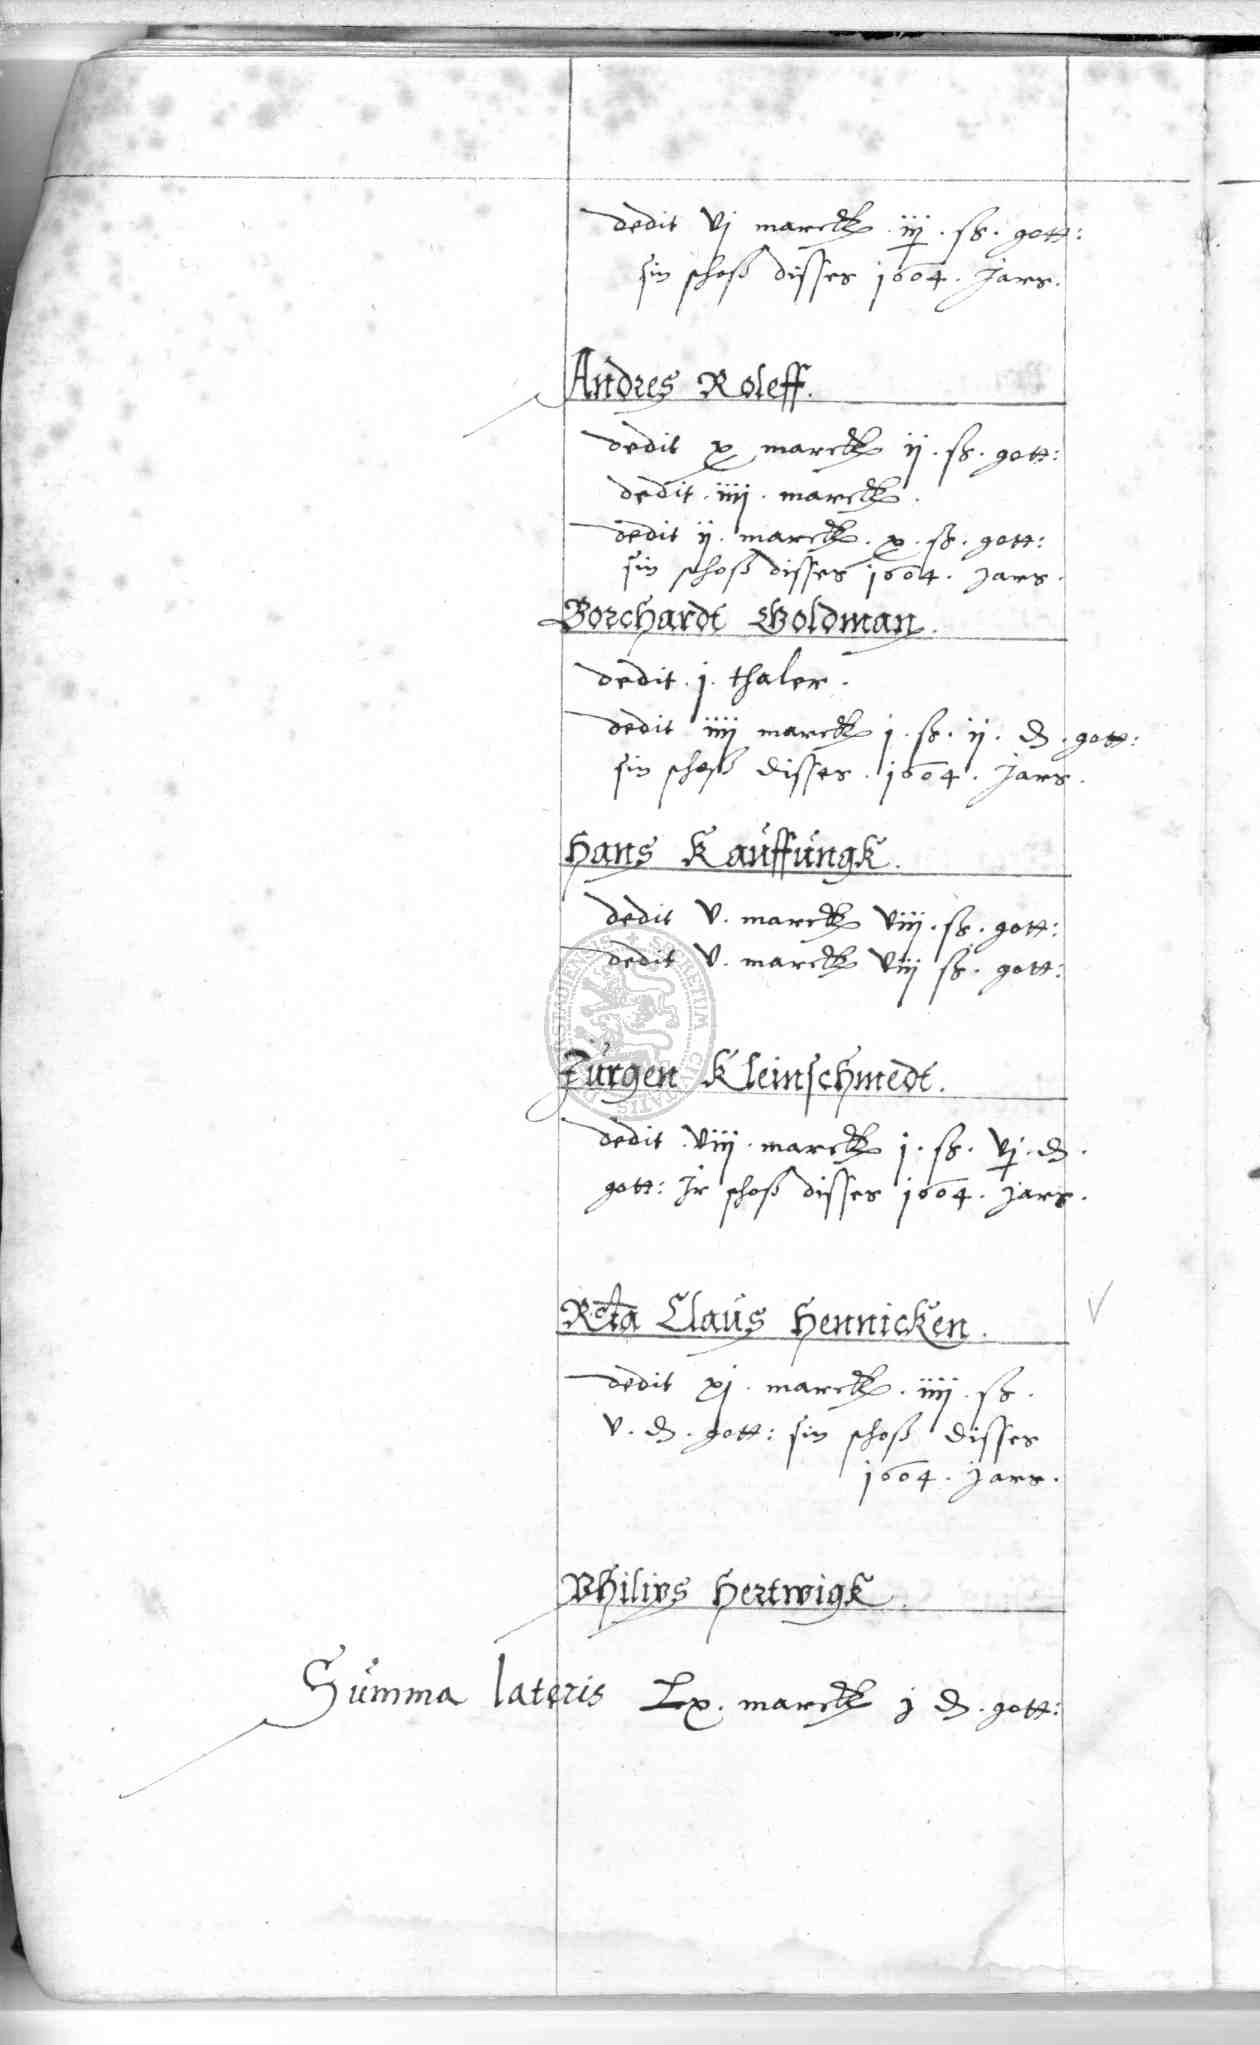 dedit vj marck . iij . ß . gott:
sin schoß disses 1604 . Jars .
Andres Roleff .
dedit x marck ij . ß . gott:
dedit . iiij . marck .
dedit ij . marck . x . ß . gott:
sin schoß disses 1604 . Jars .
Borchardt Goldman .
dedit . j . thaler .
dedit iiij marck j . ß . ij . ₰ . gott:
sin schoß disses . 1604 . Jars .
Hans Kauffungk .
dedit v . marck viij . ß . gott:
dedit v . marck viij ß . gott:
Jurgen Kleinschmedt .
dedit . viij . marck j . ß . vj . ₰ .
gott: Jr schoß disses 1604 . Jars .
Rcta Claus Hennicken .
dedit xj . marck . iiij . ß .
v . ₰ . gott: sin schoß disses
1604 . Jars .
Philips Hertwigk .
Summa lateris Lx . marck j ₰ . gott:
SECRETUM CIVITATIS